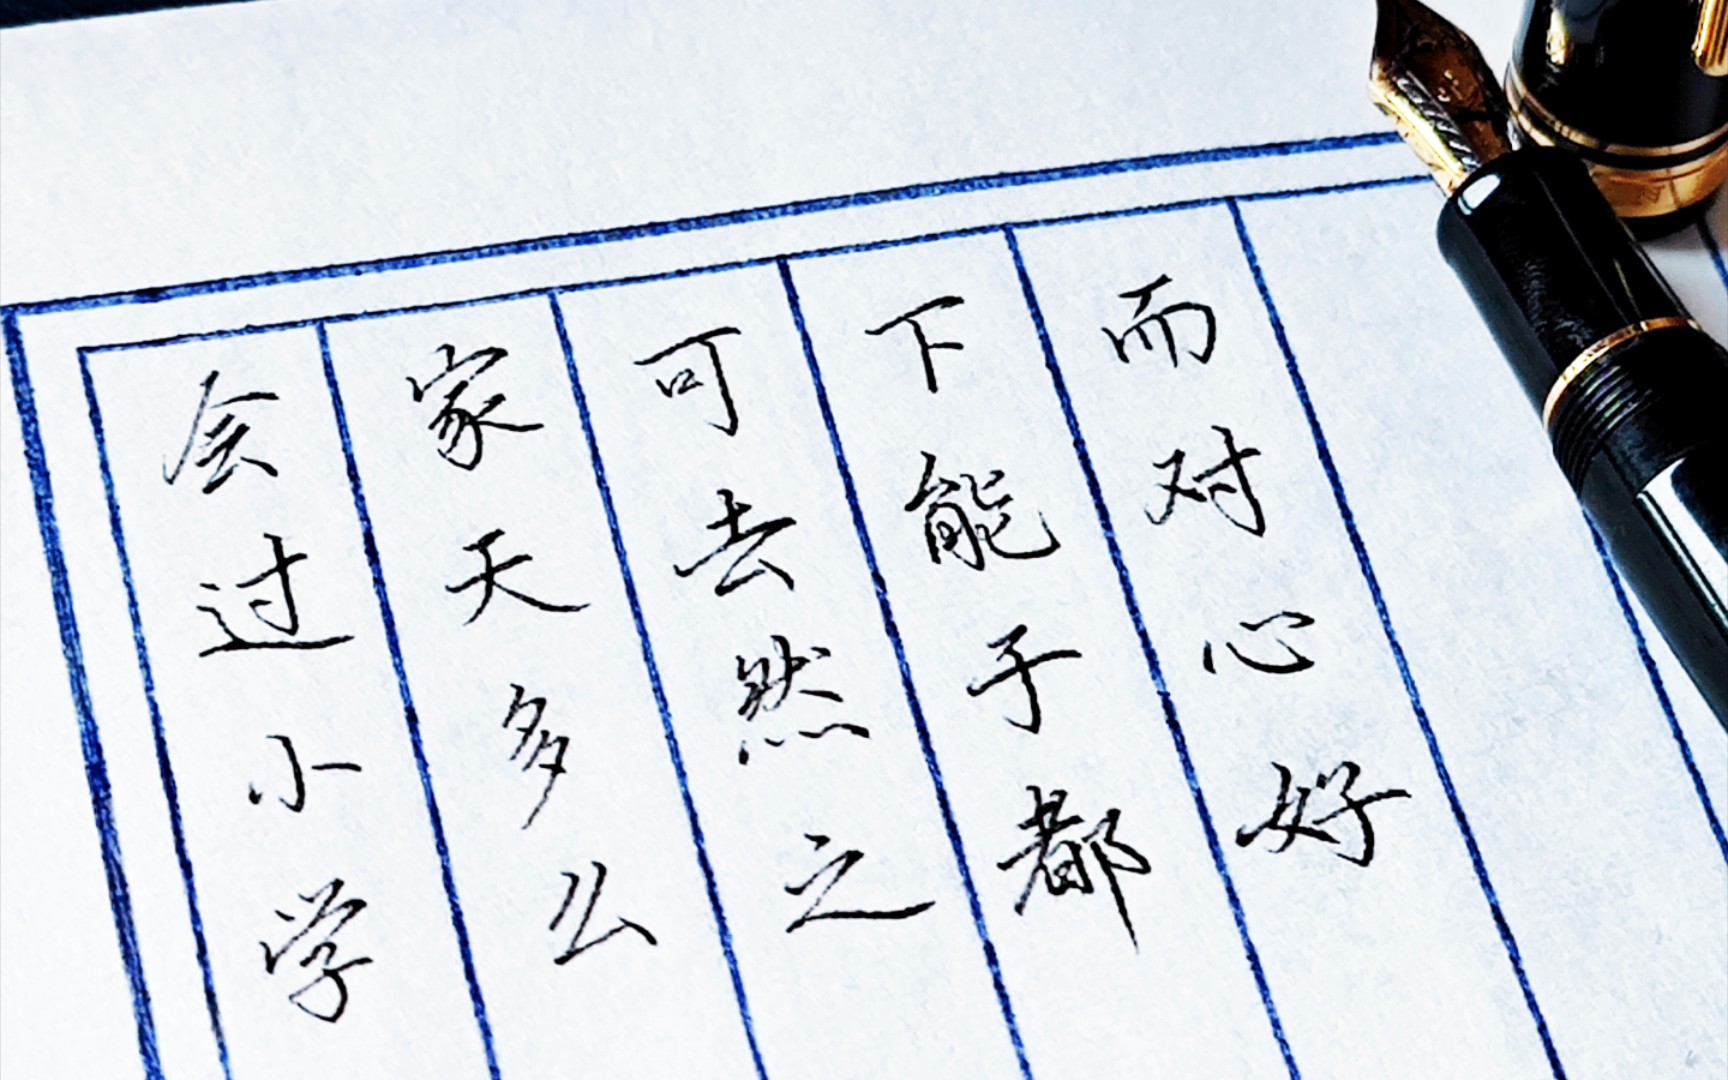 会家可下而
过天去能对
小多然于心
学么之都好